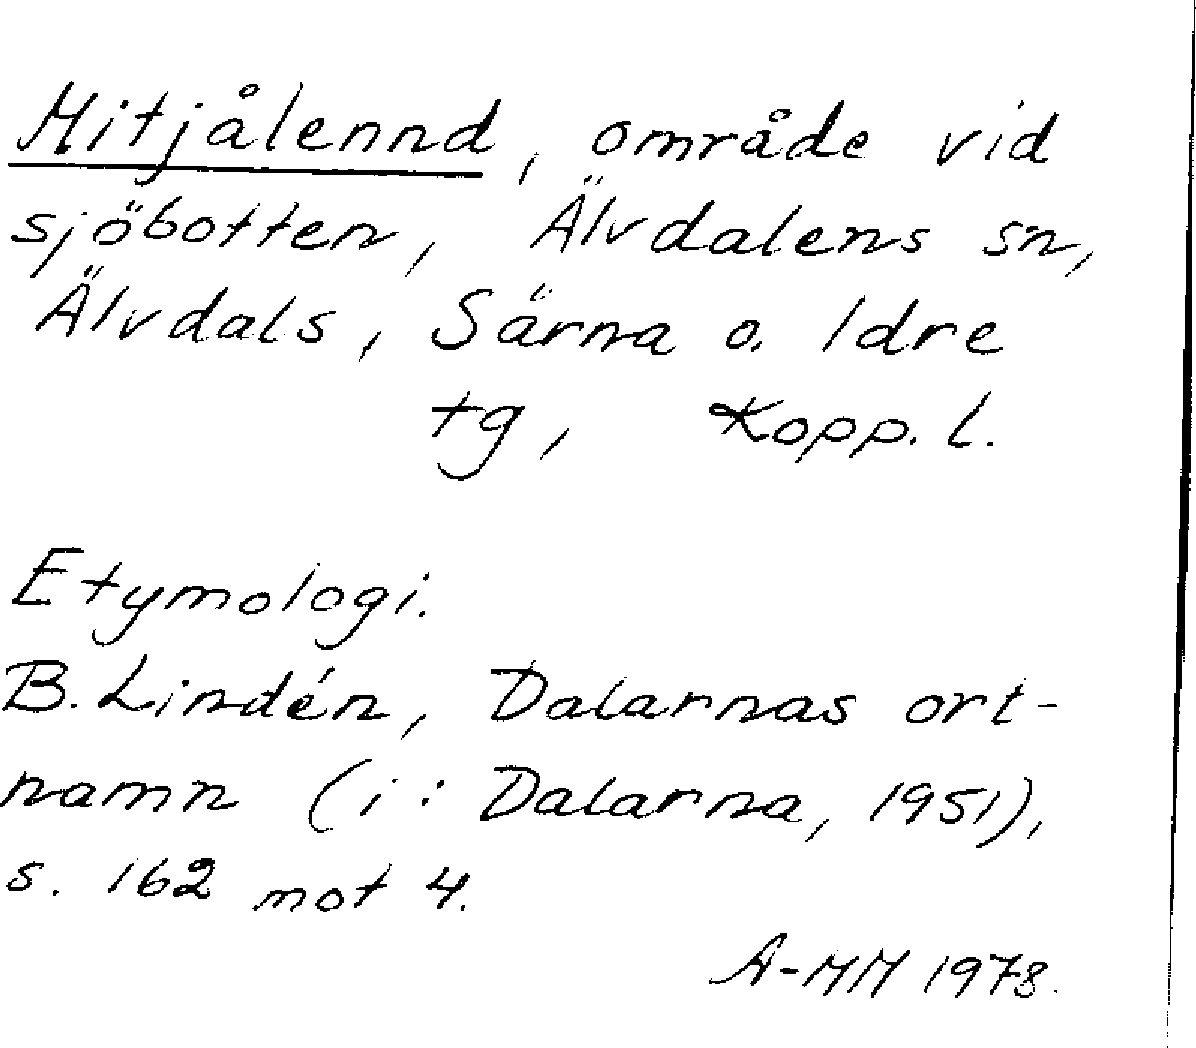 Mitjålennd, område vid
sjöbotten, Älvdalens sn,
Älvdals, Särna o. Idre
tg, Kopp. l.
Etymologi.
B. Lindén, Dalarnas ort-
namn (i: Dalarna, 1951),
s. 162 mot 4.
A-MM 1978.